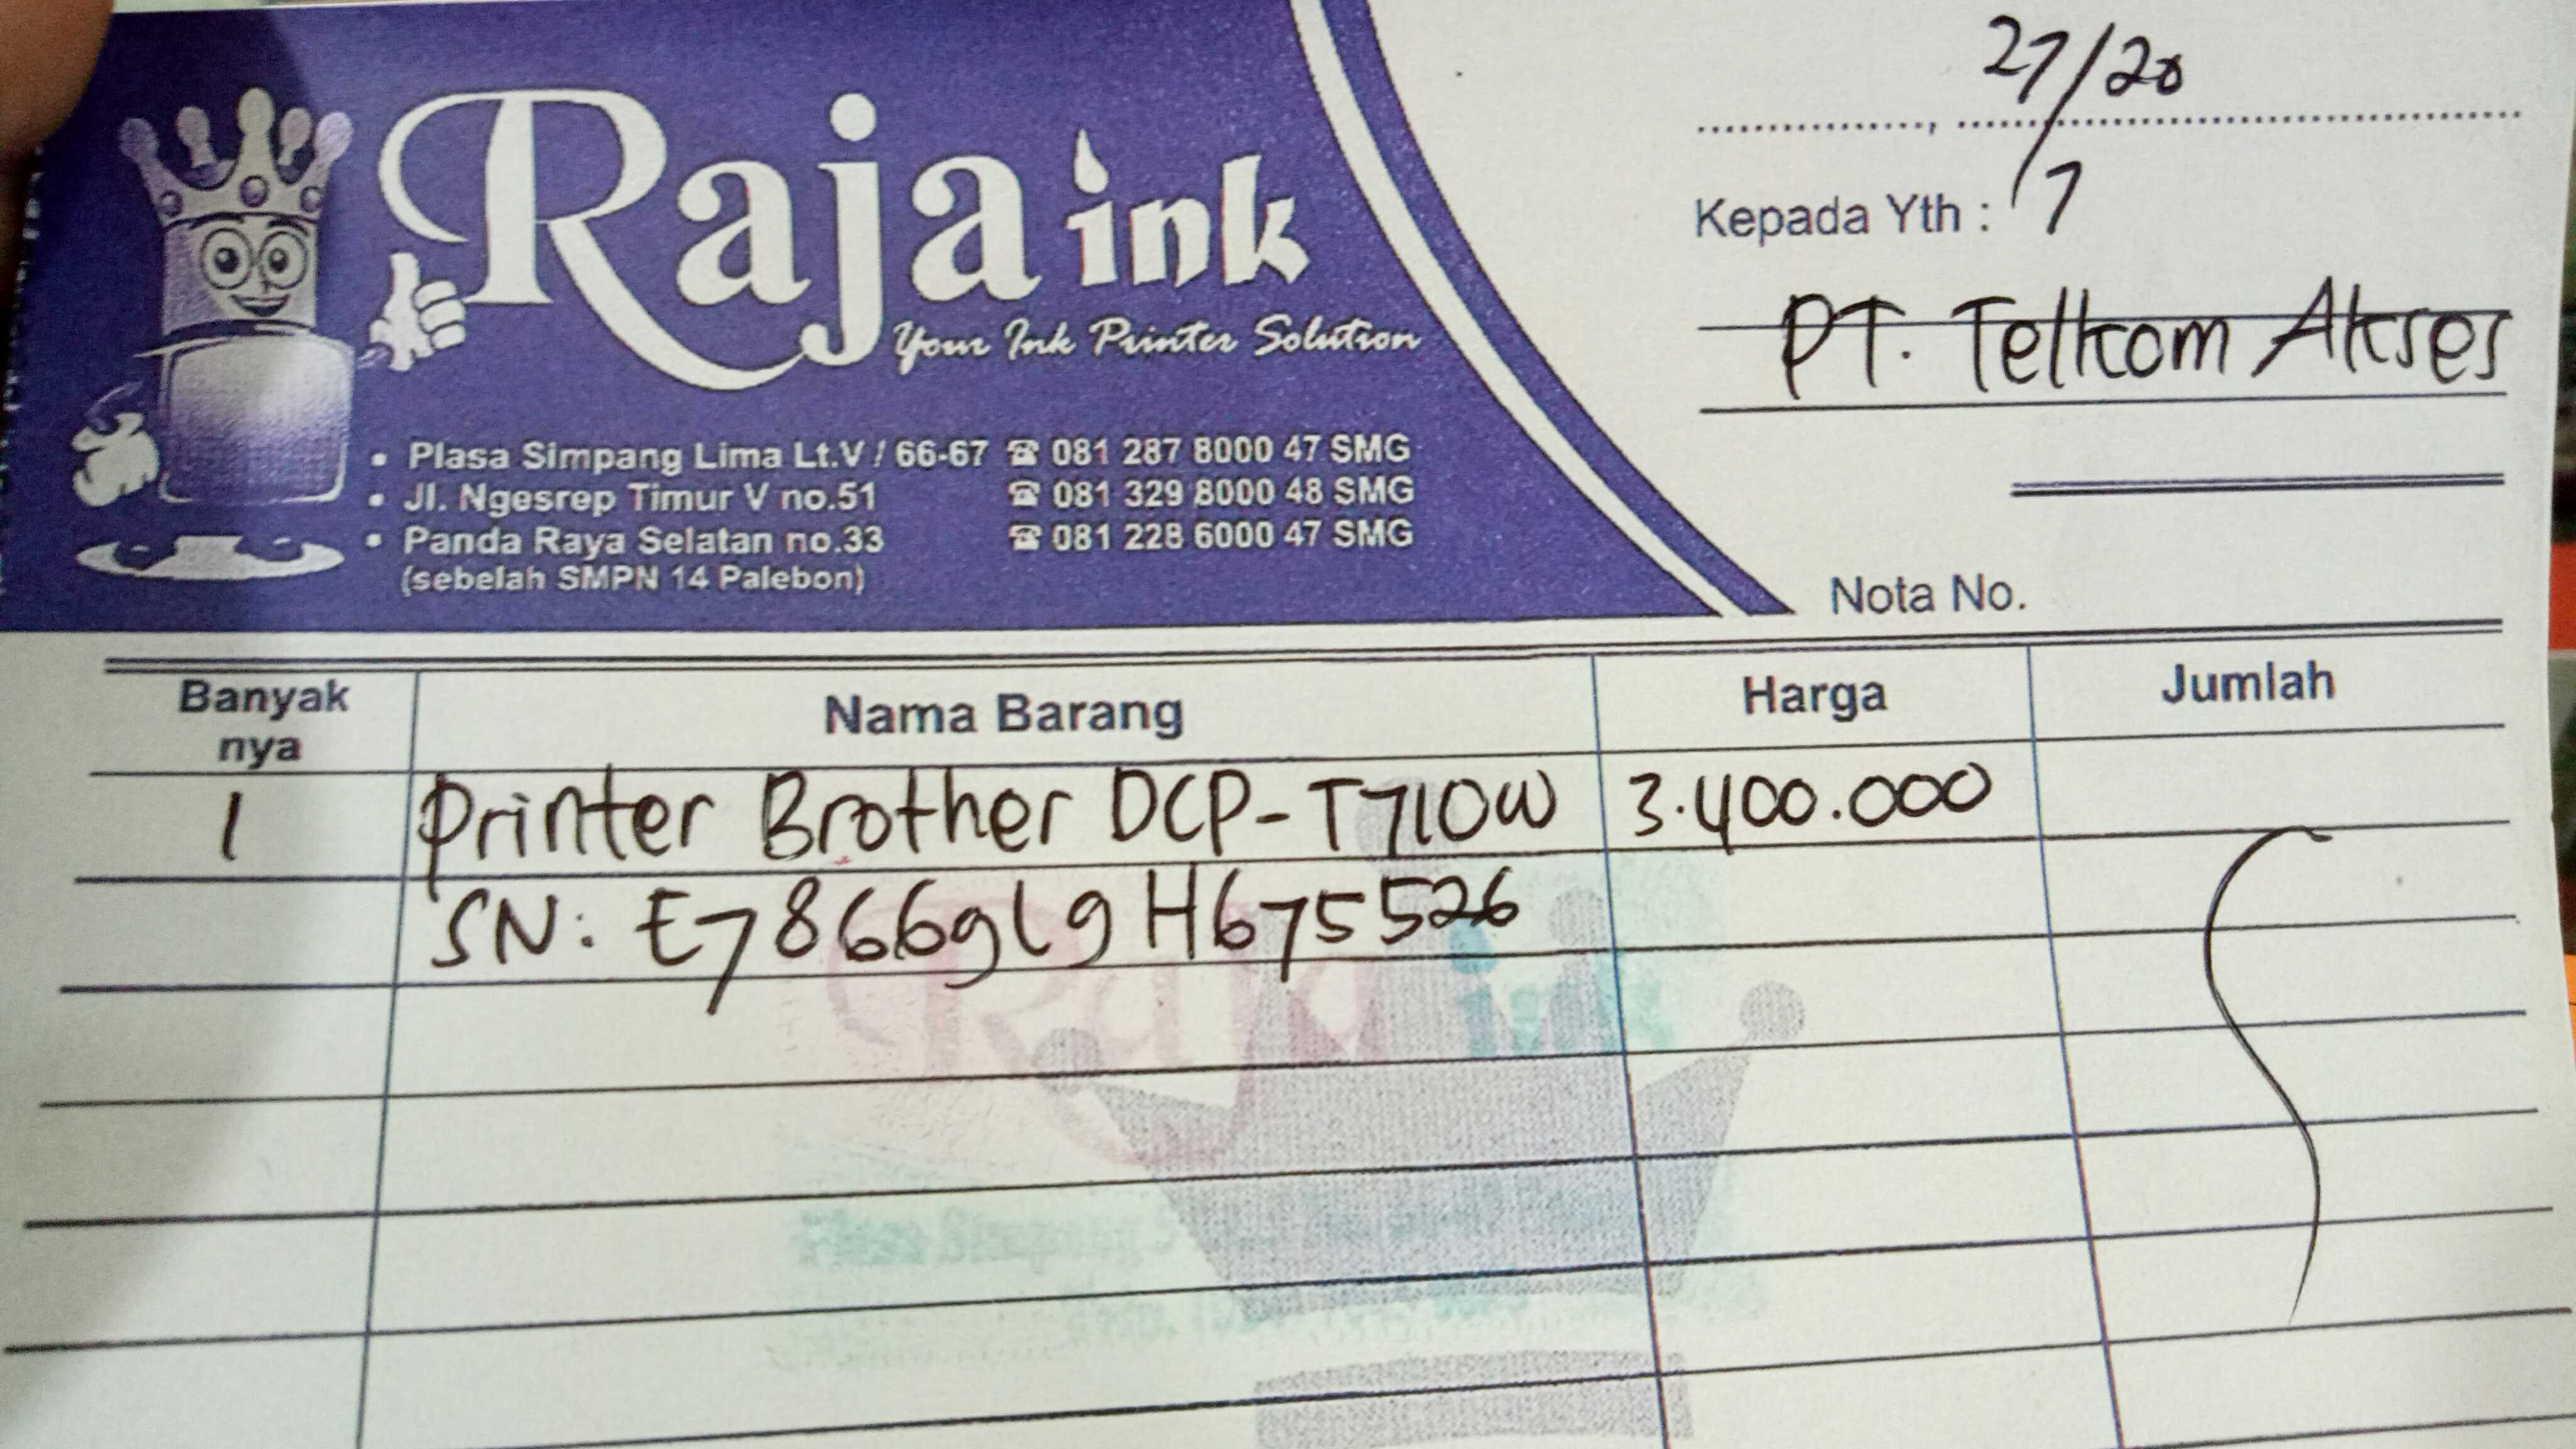 Raja ink
Your Ink Printer Solution
• Plasa Simpang Lima Lt.V / 66-67 ☎ 081 287 8000 47 SMG
• Jl. Ngesrep Timur V no.51 ☎ 081 329 8000 48 SMG
• Panda Raya Selatan no.33 ☎ 081 228 6000 47 SMG
(sebelah SMPN 14 Palebon)
27/20
7
Kepada Yth :
PT. Telkom Akses
Nota No.
Banyak nya Nama Barang Harga Jumlah
1 Printer Brother DCP-T710W 3.400.000
SN: E78669L9H675526
Raja ink
Plasa Simpang